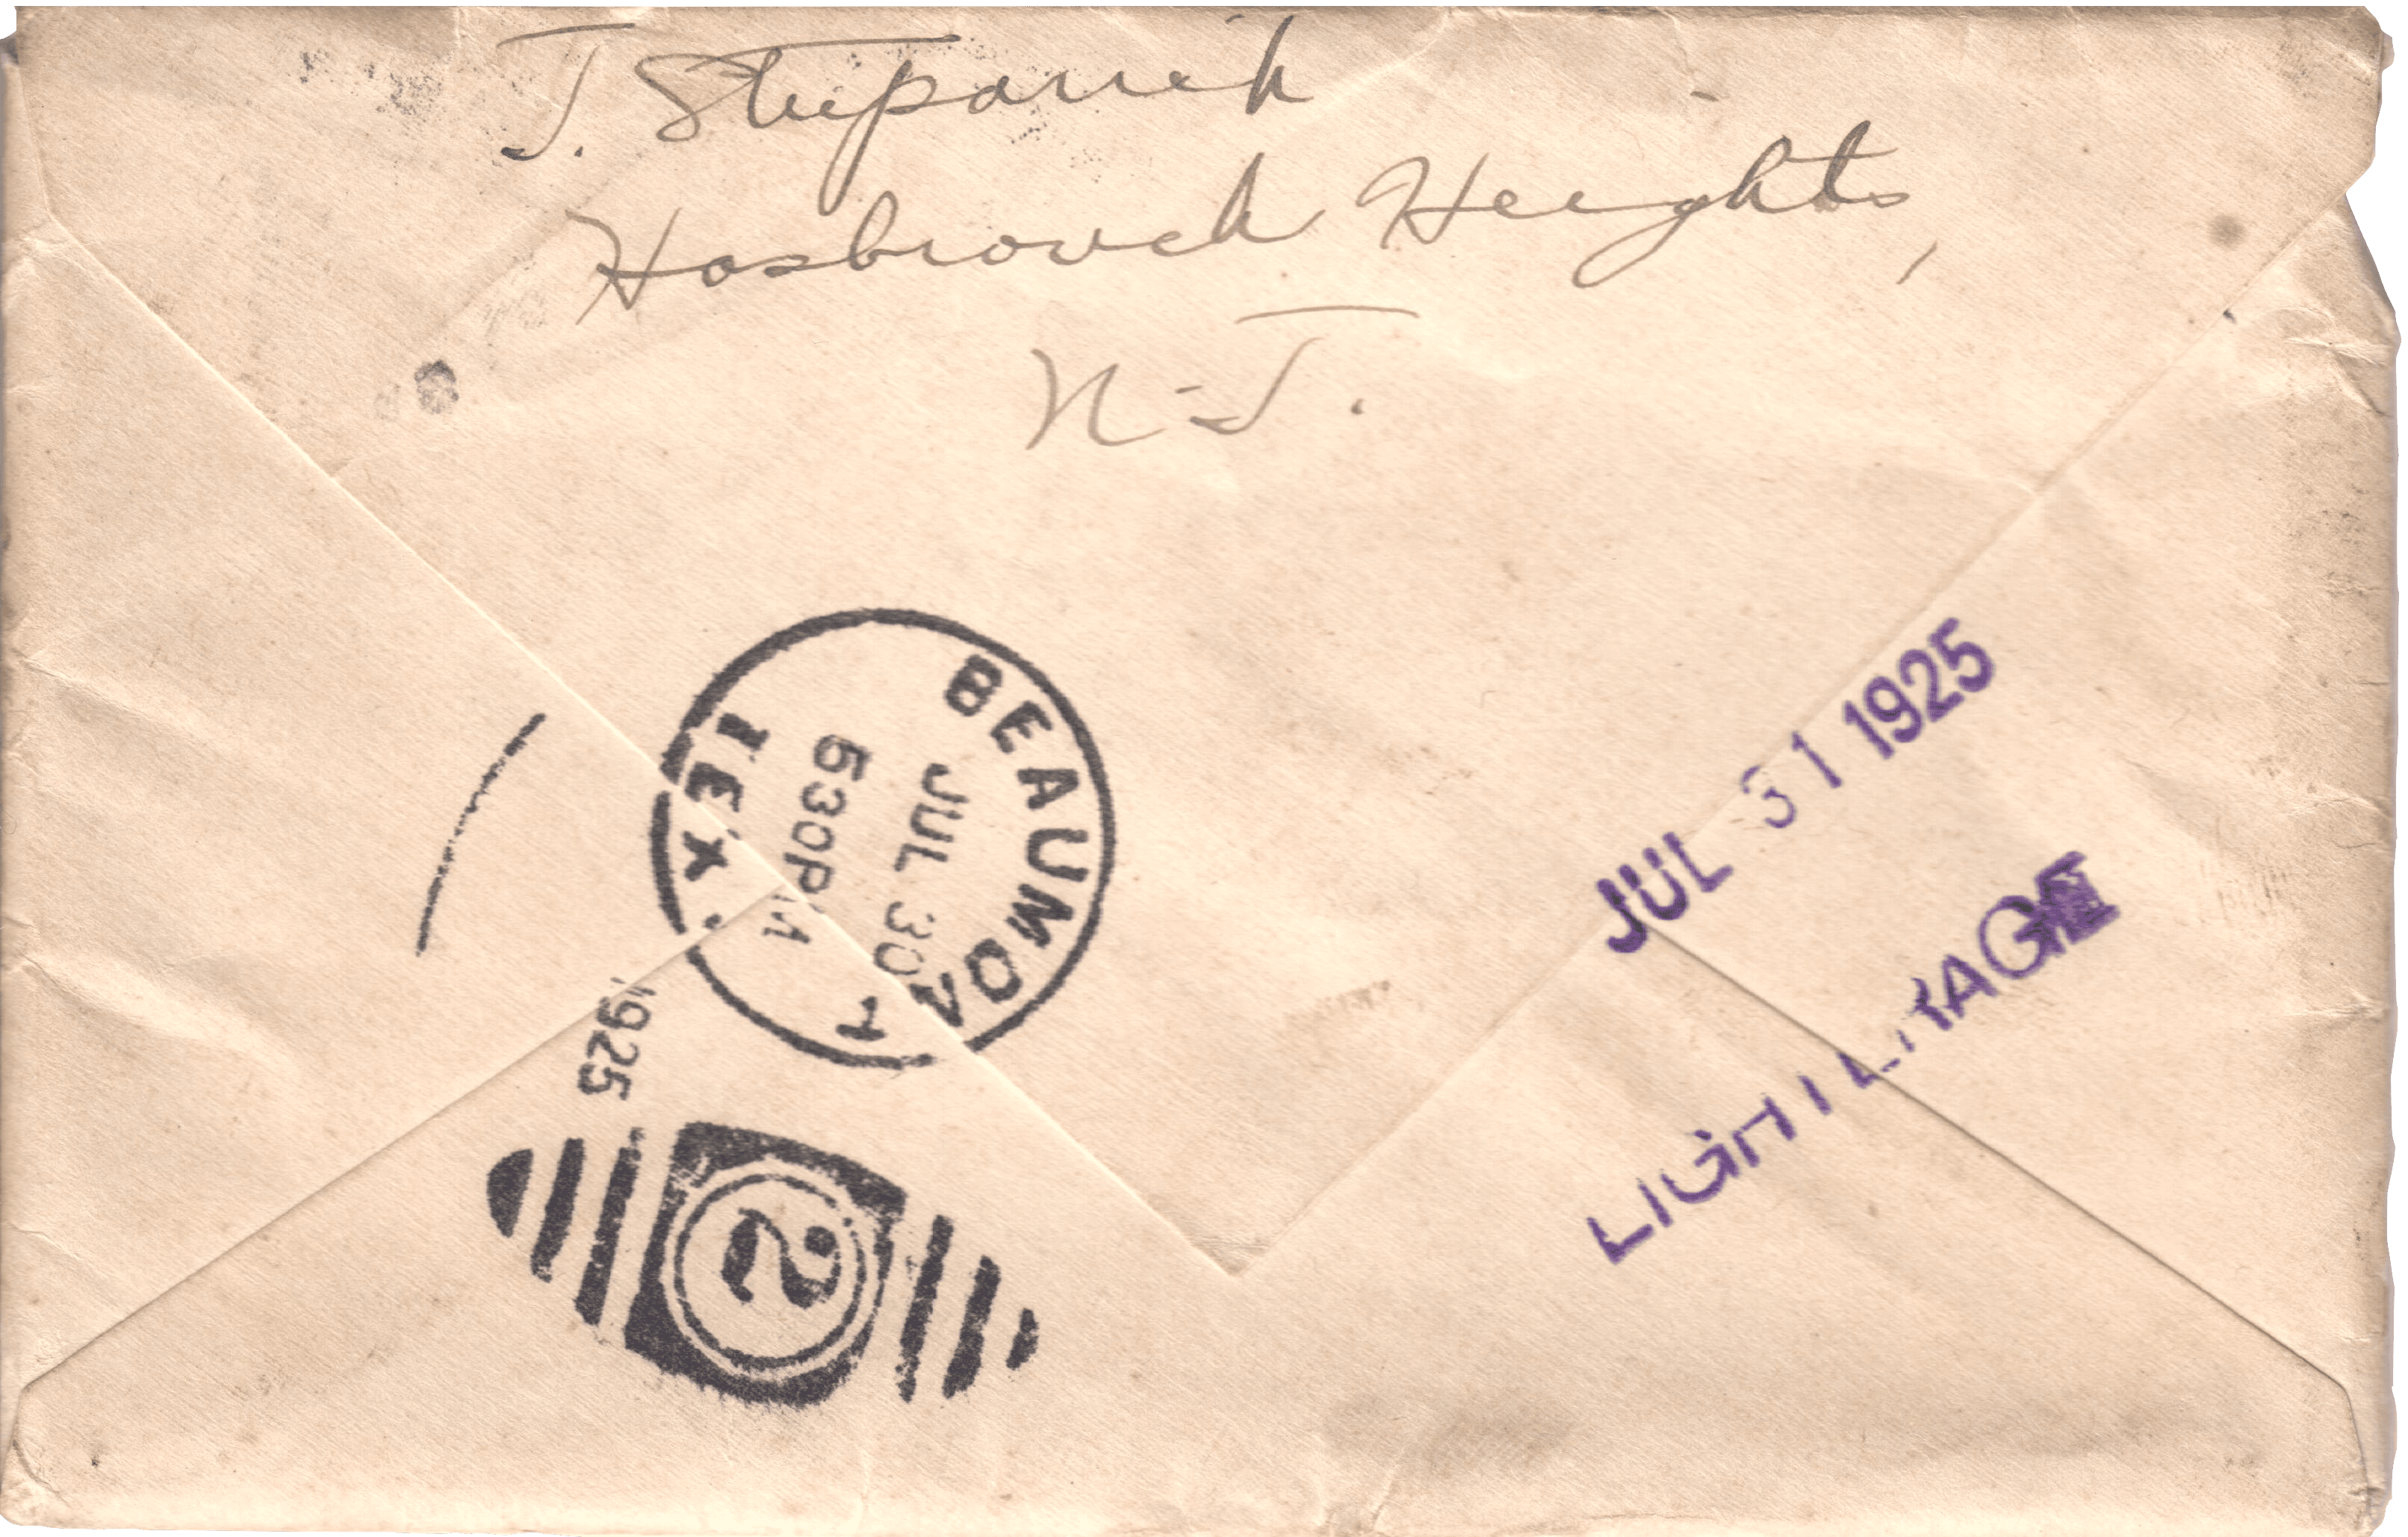 J. Stepanek
Hasbrouck Heights,
N-J.
BEAUMONT
JUL 30
530PM
TEX.
1925
2
JUL 31 1925
LIGHTERAGE